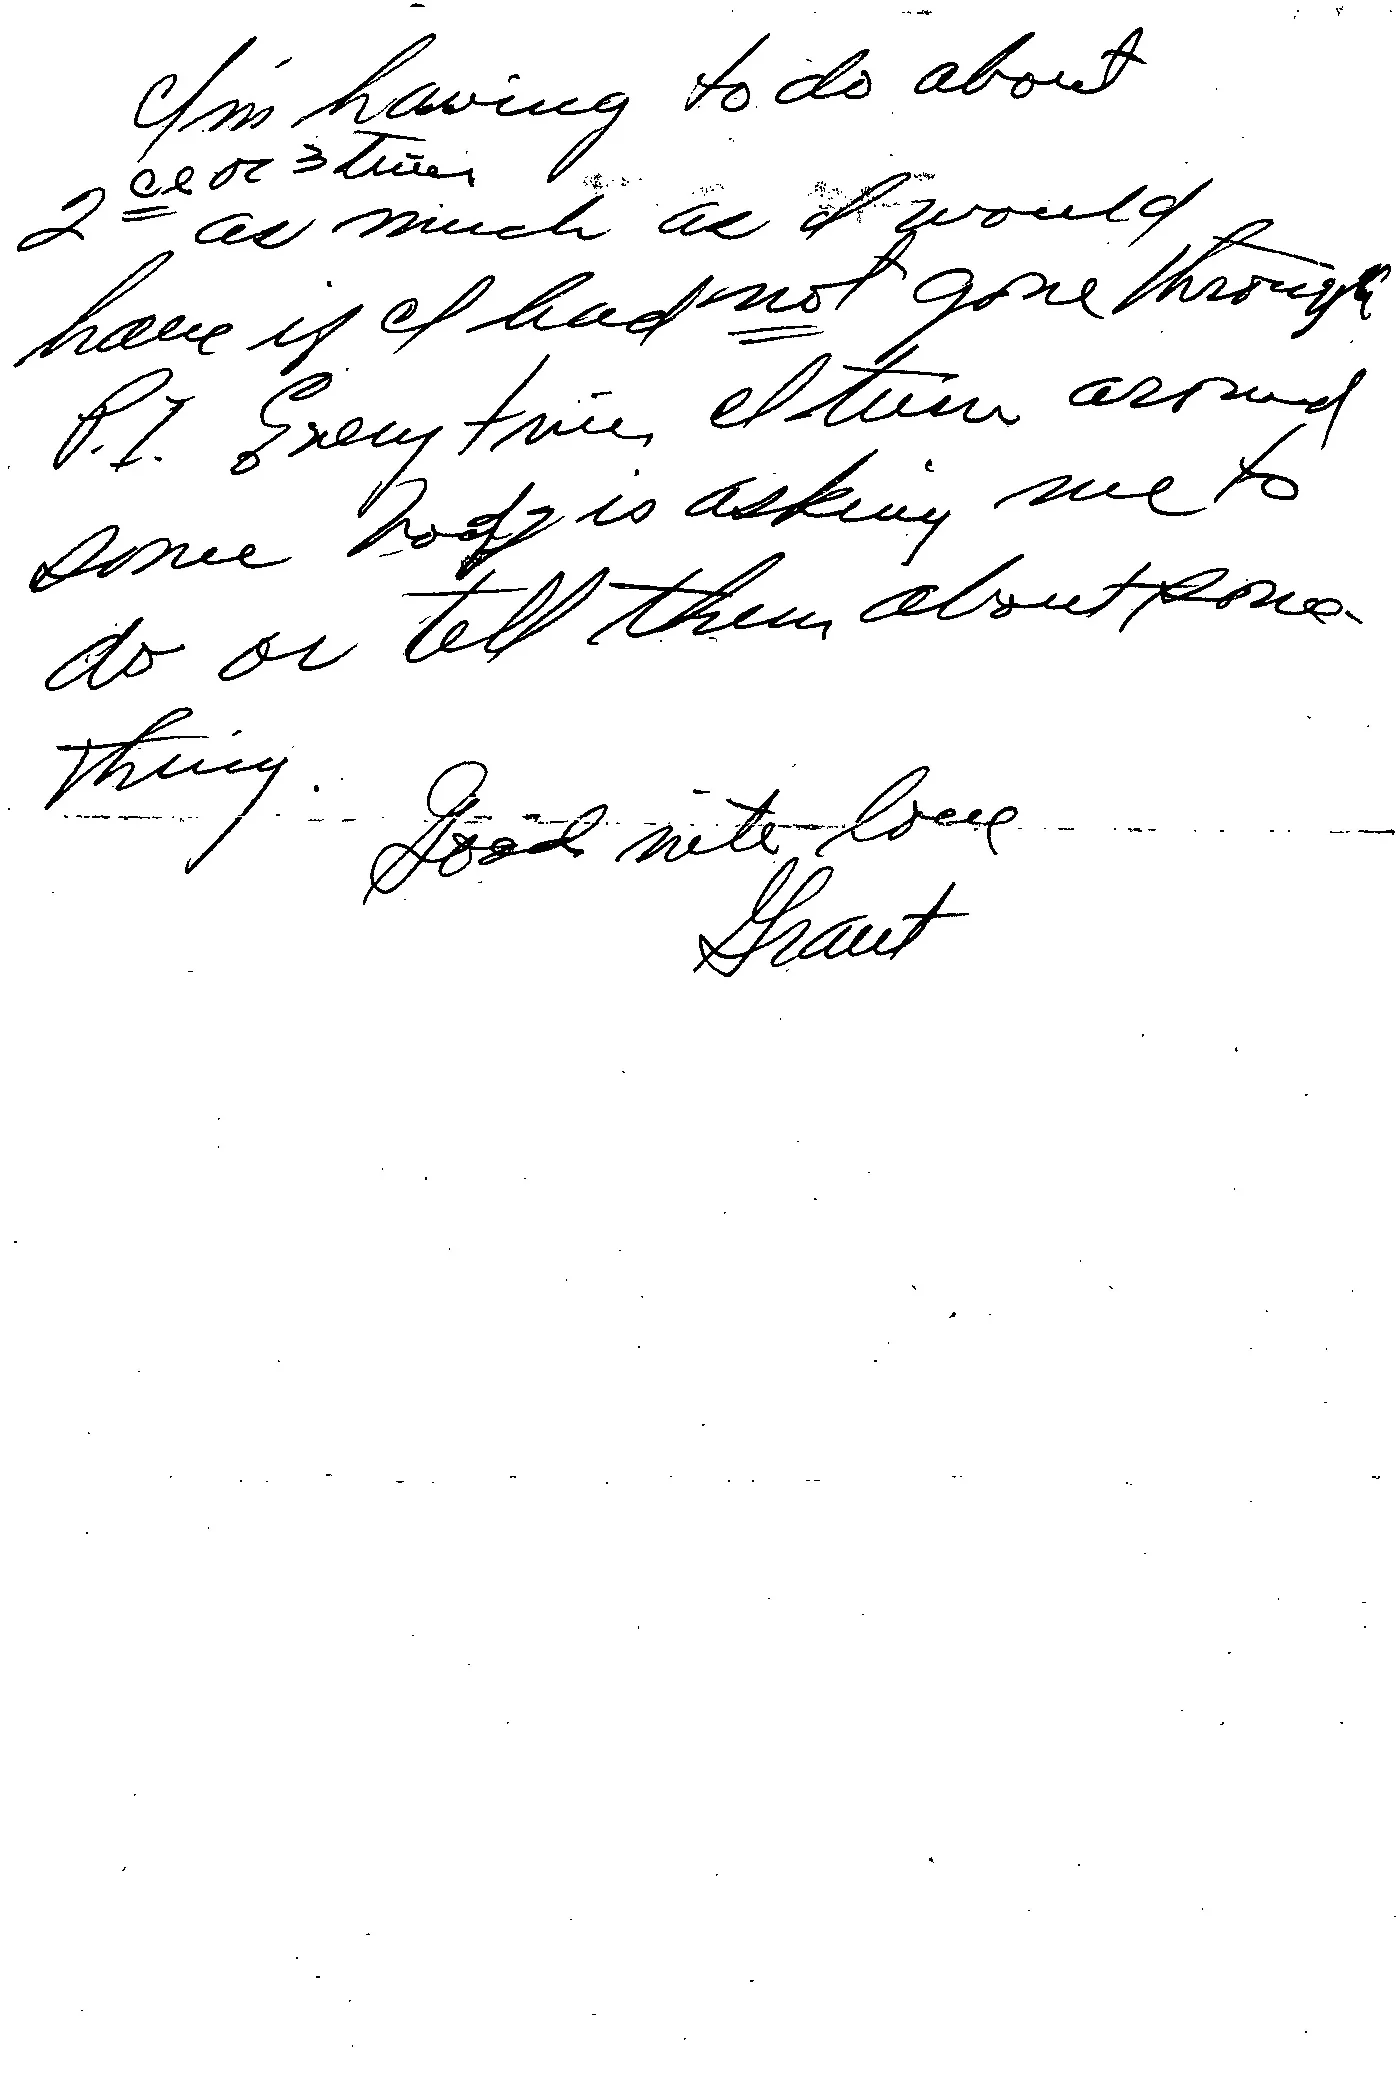 I'm having to do about
2ce or 3 times
as much as I would
have if I had not gone through
P.I. Every time I turn around
some body is asking me to
do or tell them about some
thing.
Good nite love
Grant